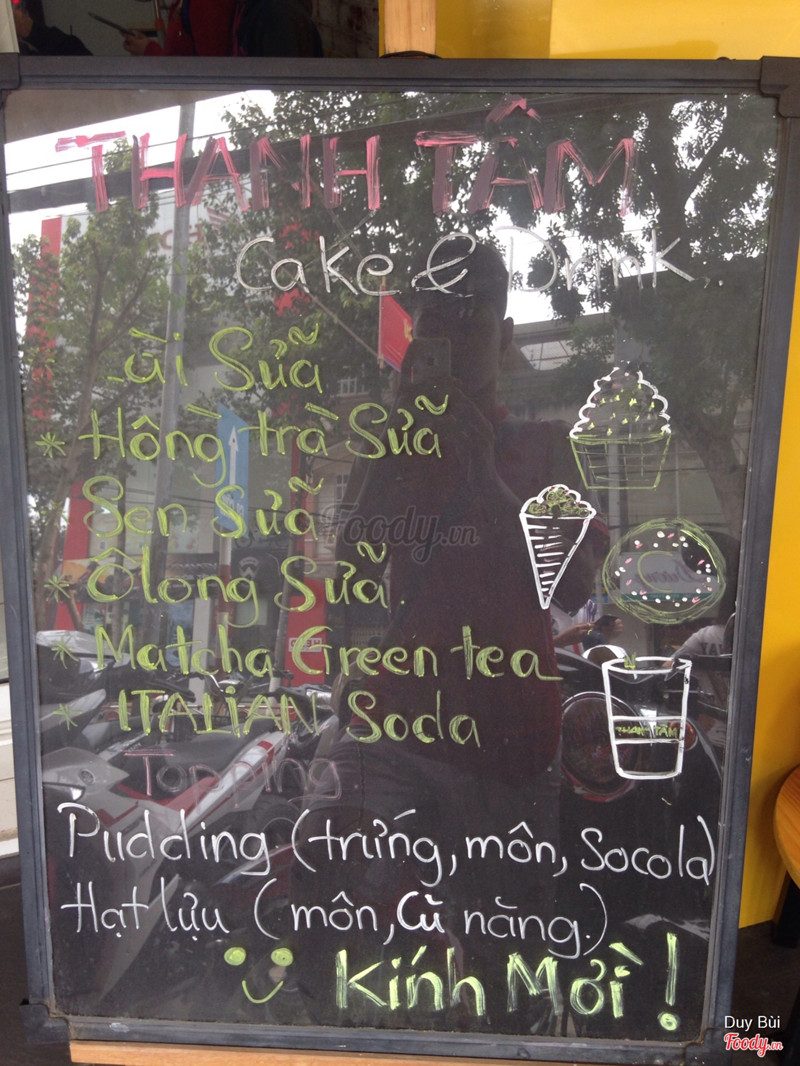 THANH TÂM
Cake & Drink..
Sữa
* Hồng trà Sữa
Sen Sữa
* Ôlong Sữa.
* Matcha Green tea
* ITALIAN Soda
THANH TÂM
Topping
Pudding (trứng, môn, Socola)
Hạt lựu (môn, Củ năng.)
Kính Mời !
Foody.vn
Duy Bùi
Foody.vn